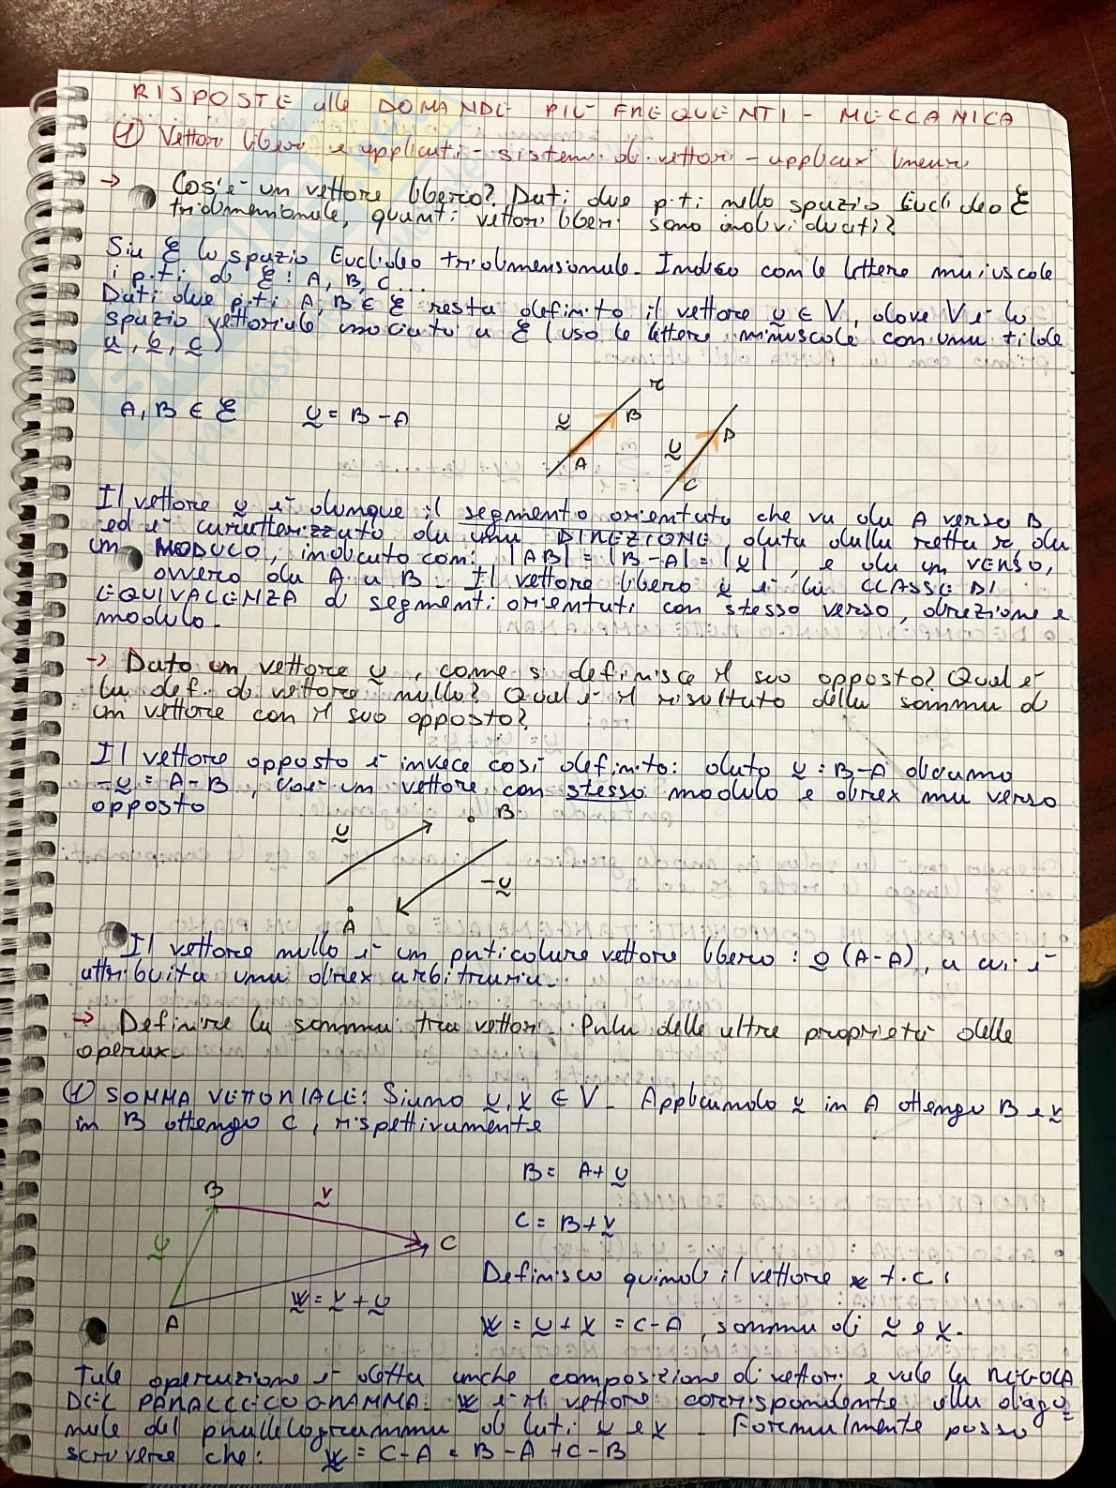 RISPOSTE alle DOMANDE PIÙ FREQUENTI - MECCANICA
① Vettori liberi e applicati - sistemi di vettori - applicaz lineari
→ Cos'è un vettore libero? Dati due p.ti nello spazio Euclideo E
tridimensionale, quanti vettori liberi sono individuati?
Sia E lo spazio Euclideo tridimensionale. Indico con le lettere maiuscole
i p.ti di E: A, B, C...
Dati due p.ti A, B ∈ E resta definito il vettore u ∈ V, dove V è lo
spazio vettoriale associato a E (uso le lettere minuscole con una tilde
a, b, c)
A, B ∈ E u = B - A
r
u B
A
u D
C
Il vettore u è dunque il segmento orientato che va da A verso B
ed è caratterizzato da una DIREZIONE, data dalla retta r, da
un MODULO, indicato con: |AB| = |B-A| = |u|, e da un VERSO,
ovvero da A a B. Il vettore libero u è la CLASSE DI
EQUIVALENZA di segmenti orientati con stesso verso, direzione e
modulo.
→ Dato un vettore u, come si definisce il suo opposto? Qual è
la def. di vettore nullo? Qual è il risultato della somma di
un vettore con il suo opposto?
Il vettore opposto è invece così definito: dato u = B-A diciamo
-u = A-B, cioè un vettore con stesso modulo e direz ma verso
opposto
u B
-u
A
Il vettore nullo è un paticolare vettore libero: 0 (A-A), a cui è
attribuita una direz arbitraria.
→ Definire la somma tra vettori. Parla delle altre proprietà delle
operaz.
① SOMMA VETTORIALE: Siano u, v ∈ V. Applicando u in A ottengo B e v
in B ottengo C, rispettivamente
B = A + u
C = B + v
B v
u C
w = v + u
A
Definisco quindi il vettore w t.c:
w = u + v = C-A, somma di u e v.
Tale operazione è detta anche composizione di vettori e vale la REGOLA
DEL PARALLELOGRAMMA: w è il vettore corrispondente alla diago
nale del parallelogramma di lati u e v. Formalmente posso
scrivere che: w = C-A = B-A + C-B